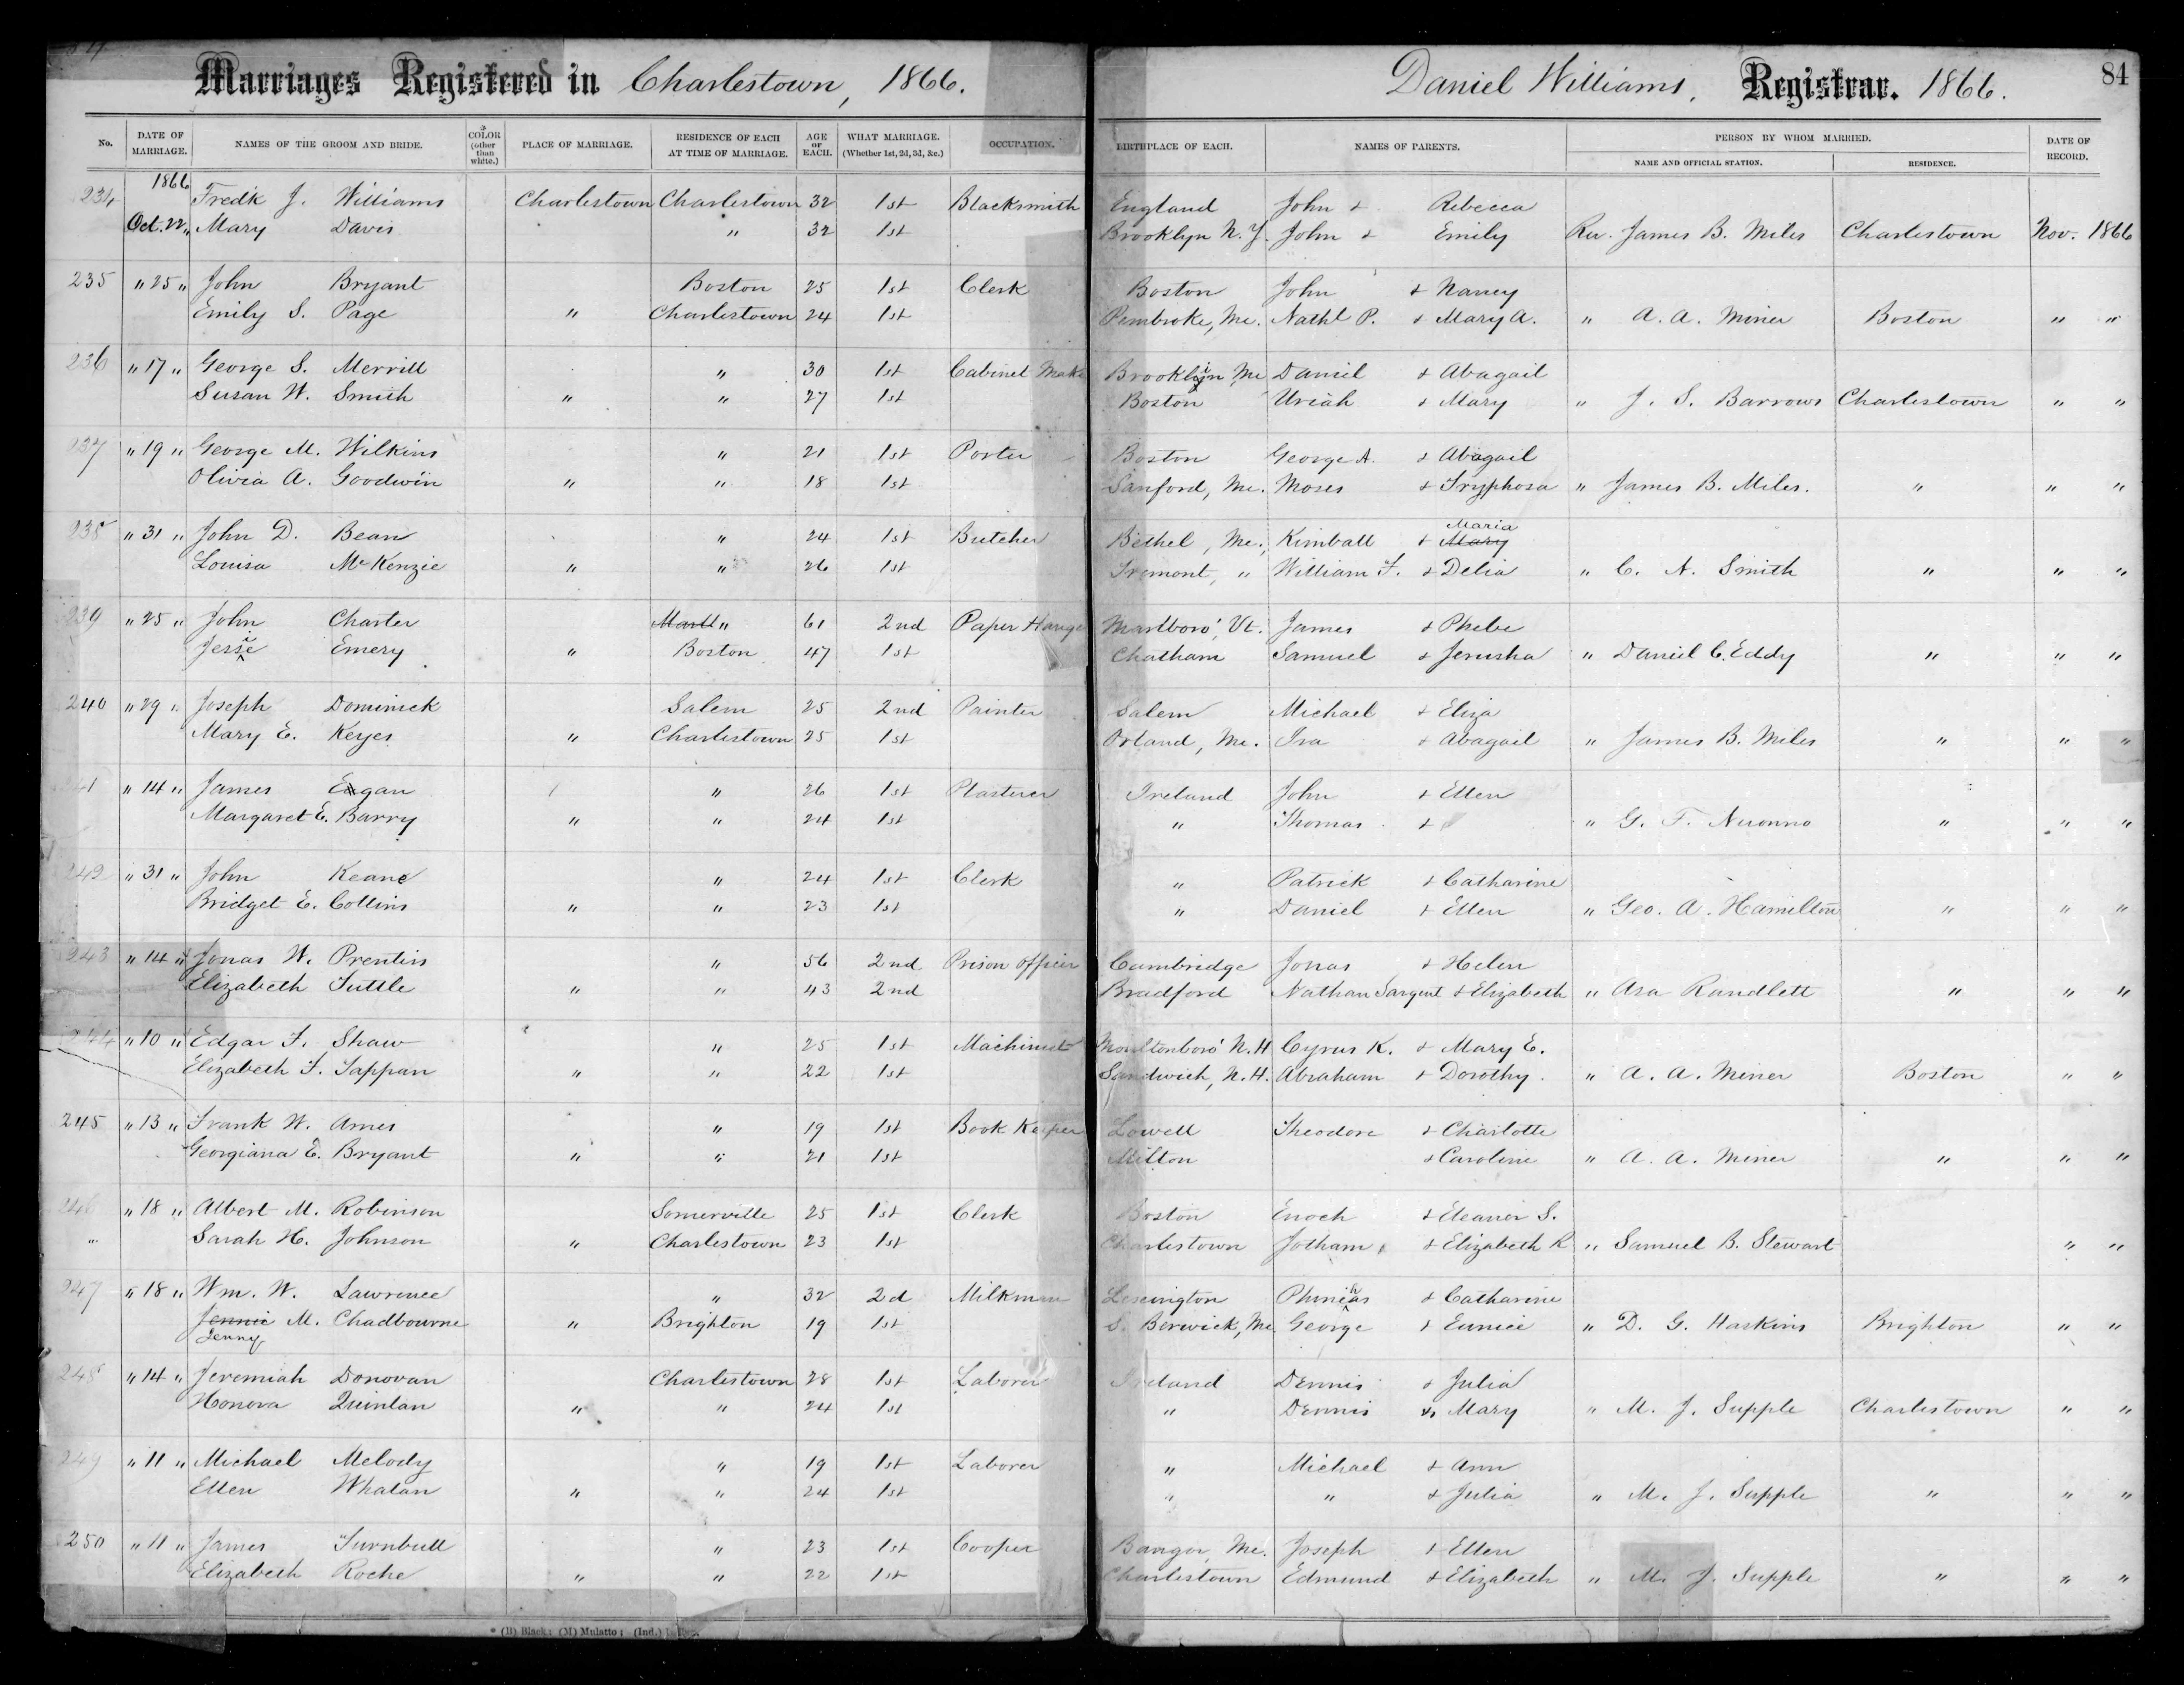 Marriages Registered in Charlestown, 1866.
Daniel Williams, Registrar. 1866.
84
No. DATE OF MARRIAGE. NAMES OF THE GROOM AND BRIDE. COLOR (other than white.) PLACE OF MARRIAGE. RESIDENCE OF EACH AT TIME OF MARRIAGE. AGE OF EACH. WHAT MARRIAGE. (Whether 1st, 2d, 3d, &c.) OCCUPATION. BIRTHPLACE OF EACH. NAMES OF PARENTS. PERSON BY WHOM MARRIED. NAME AND OFFICIAL STATION. RESIDENCE. DATE OF RECORD.
234 1866 Fredk J. Williams Charlestown Charlestown 32 1st Blacksmith England John & Rebecca
Oct. 22 „ Mary Davis „ 32 1st Brooklyn N. Y. John & Emily Rev. James B. Miles Charlestown Nov. 1866
235 „ 25 „ John Bryant Boston 25 1st Clerk Boston John & Nancy
Emily S. Page „ Charlestown 24 1st Pembroke, Me. Nathl P. & Mary A. „ A. A. Miner Boston „ „
236 „ 17 „ George S. Merrill „ 30 1st Cabinet Make Brooklin, Me Daniel & Abagail
Susan W. Smith „ „ 27 1st Boston Uriah & Mary „ J. S. Barrows Charlestown „ „
237 „ 19 „ George M. Wilkins „ 21 1st Porter Boston George A. & Abagail
Olivia A. Goodwin „ „ 18 1st Sanford, Me. Moses & Tryphosa „ James B. Miles. „ „ „
238 „ 31 „ John D. Bean „ 24 1st Butcher Bethel, Me. Kimball & Mary Maria
Louisa McKenzie „ „ 26 1st Tremont, „ William F. & Delia „ C. N. Smith „ „ „
239 „ 25 „ John Charter Marll „ 61 2nd Paper Hange Marlboro', Vt. James & Phebe
Jessie Emery „ Boston 47 1st Chatham Samuel & Jerusha „ Daniel C. Eddy „ „ „
240 „ 29 „ Joseph Dominick Salem 25 2nd Painter Salem Michael & Eliza
Mary E. Keyes „ Charlestown 25 1st Orland, Me. Ira & Abagail „ James B. Miles „ „ „
241 „ 14 „ James Eagan „ 26 1st Plasterer Ireland John & Ellen
Margaret E. Barry „ „ 24 1st „ Thomas & „ G. F. „ „ „
242 „ 31 „ John Keane „ 24 1st Clerk „ Patrick & Catharine
Bridget E. Collins „ „ 23 1st „ Daniel & Ellen „ Geo. A. Hamilton „ „ „
243 „ 14 „ Jonas W. Prentiss „ 56 2nd Prison officer Cambridge Jonas & Helen
Elizabeth Tuttle „ „ 43 2nd Bradford Nathan Sargent & Elizabeth „ Asa Randlett „ „ „
244 „ 10 „ Edgar F. Shaw „ 25 1st Machinist Moultonboro' N. H Cyrus K. & Mary E.
Elizabeth F. Tappan „ „ 22 1st Sandwich, N. H. Abraham & Dorothy. „ A. A. Miner Boston „ „
245 „ 13 „ Frank W. Ames „ 19 1st Book Keeper Lowell Theodore & Charlotte
Georgiana E. Bryant „ „ 21 1st Milton & Caroline „ A. A. Miner „ „ „
246 „ 18 „ Albert M. Robinson Somerville 25 1st Clerk Boston Enoch & Eleanor S.
Sarah H. Johnson „ Charlestown 23 1st Charlestown Jotham & Elizabeth R „ Samuel B. Stewart „ „
247 „ 18 „ Wm. W. Lawrence „ 32 2d Milkman Lexington Phinehas & Catharine
Jennie M. Chadbourne „ Brighton 19 1st S. Berwick, Me. George & Eunice „ D. G. Haskins Brighton „ „
Jenny
248 „ 14 „ Jeremiah Donovan Charlestown 28 1st Laborer Ireland Dennis & Julia
Honora Quinlan „ „ 24 1st „ Dennis & Mary „ M. J. Supple Charlestown „ „
249 „ 11 „ Michael Melody „ 19 1st Laborer „ Michael & Ann
Ellen Whalan „ „ 24 1st „ „ & Julia „ M. J. Supple „ „ „
250 „ 11 „ James Turnbull „ 23 1st Cooper Bangor, Me. Joseph & Ellen
Elizabeth Roche „ „ 22 1st Charlestown Edmund & Elizabeth „ M. J. Supple „ „ „
* (B) Black; (M) Mulatto; (Ind.)